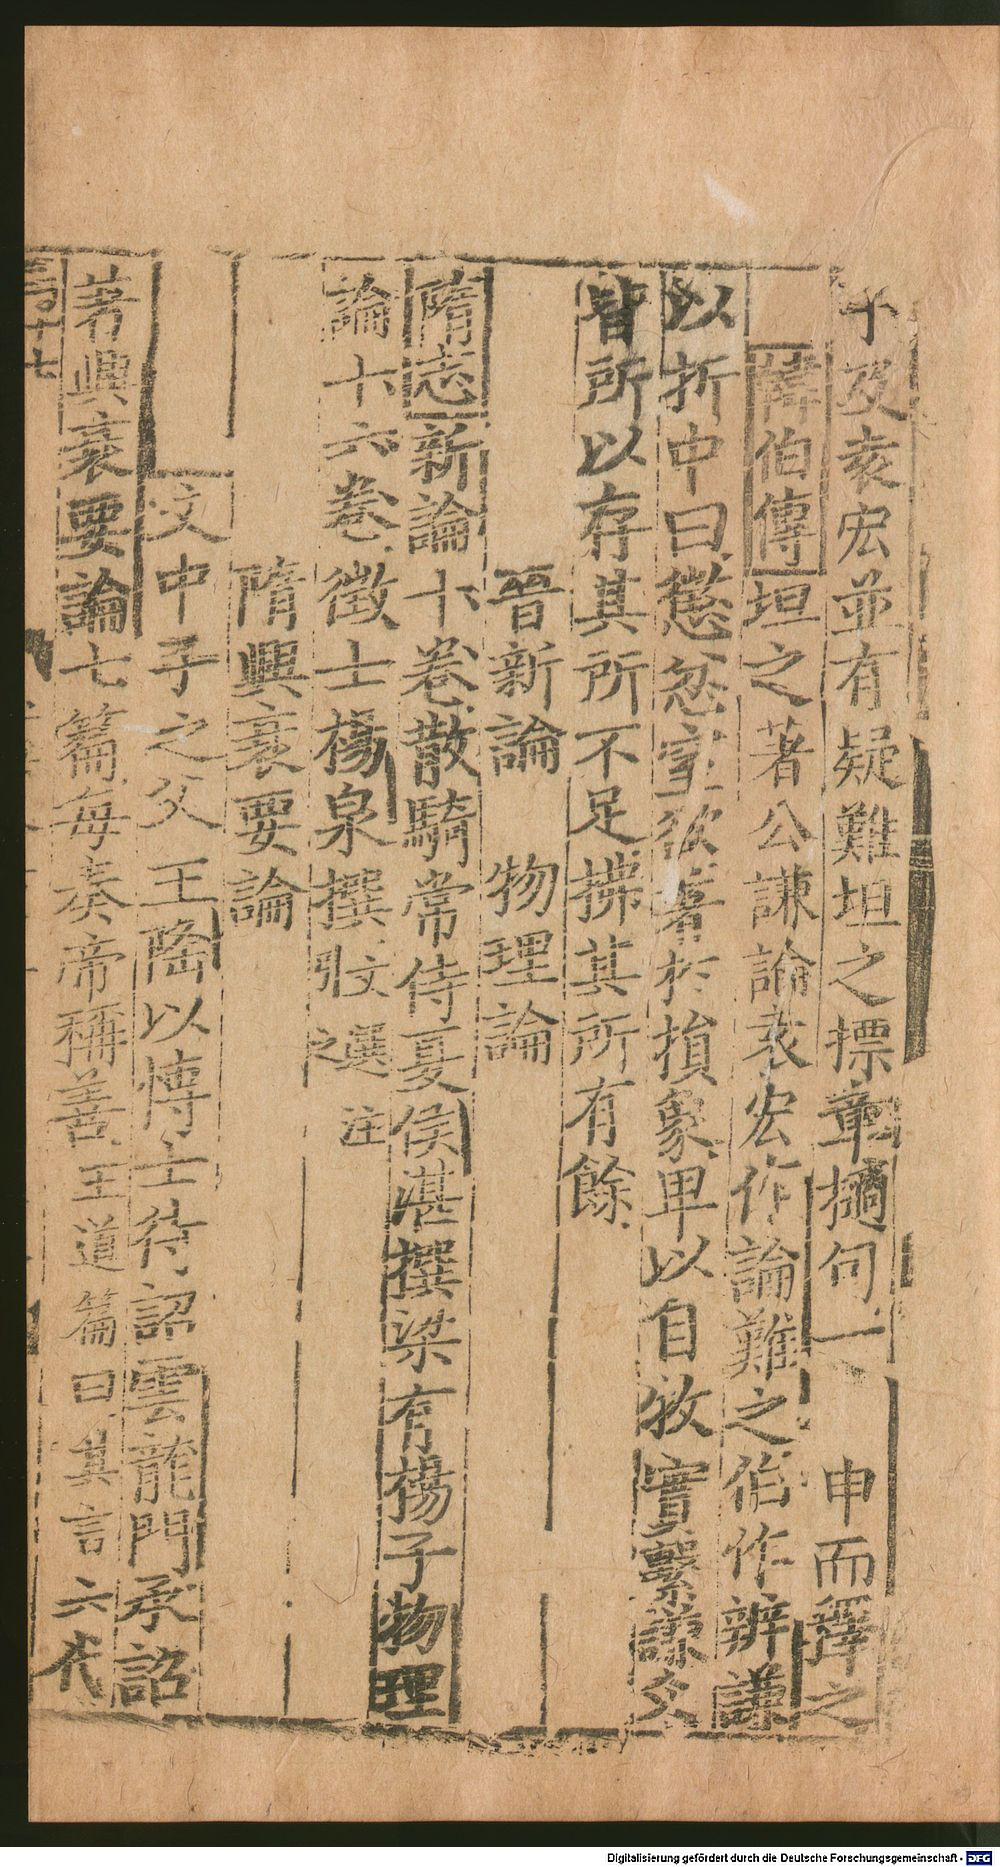 子及袁宏並有疑難坦之摽章擿句一一申而釋之
韓伯傳坦之著公謙論袁宏作論難之伯作辨謙
以折中曰懲忿窒欲著於損象卑以自牧實繫謙爻
皆所以存其所不足拂其所有餘
晉新論　物理論
隋志新論十卷散騎常侍夏侯湛撰梁有楊子物理
論十六卷徵士楊泉撰文選注引之
隋興衰要論
文中子之父王隆以愽士待詔雲龍門承詔
著興衰要論七篇每奏帝稱善王道篇曰其言六代
十七
Digitalisierung gefördert durch die Deutsche Forschungsgemeinschaft - DFG